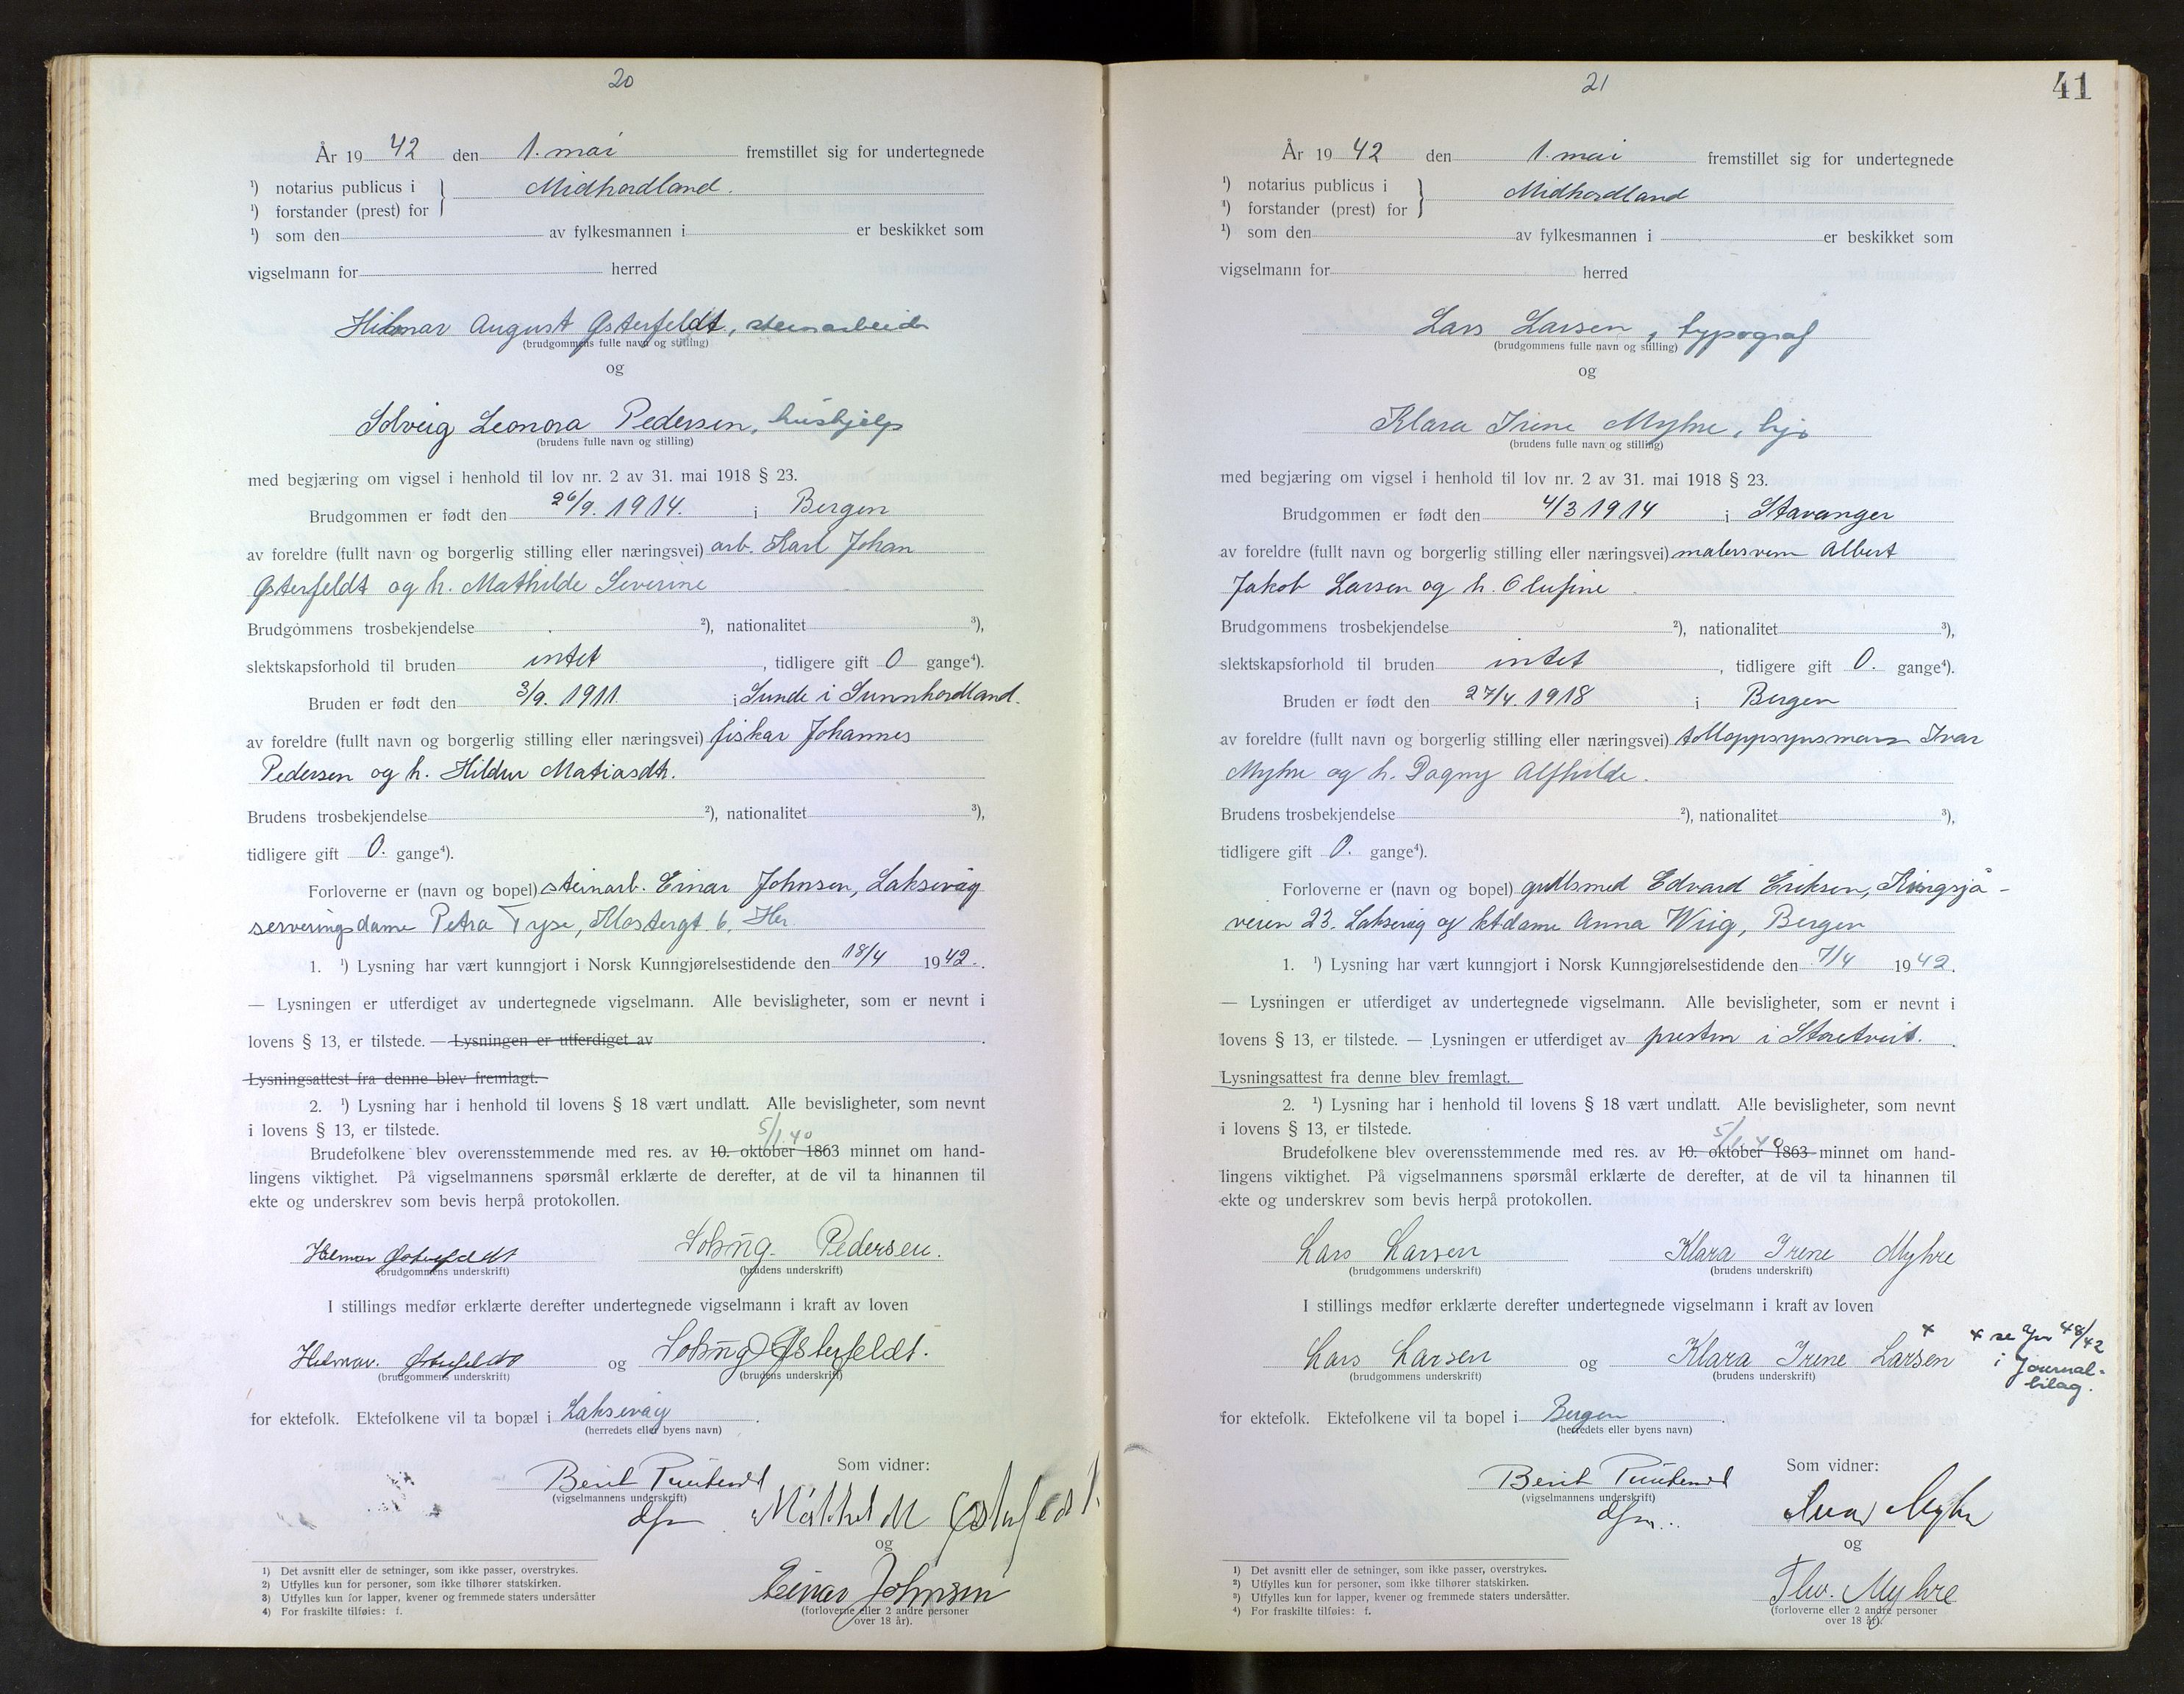 20
År 19 42 den 1. mai fremstillet sig for undertegnede
¹) notarius publicus i } Midhordland.
¹) forstander (prest) for
¹) som den av fylkesmannen i er beskikket som
vigselmann for herred
Hilmar August Østerfeldt, steinarbeider
(brudgommens fulle navn og stilling)
og
Solveig Leonora Pedersen, hushjelp
(brudens fulle navn og stilling)
med begjæring om vigsel i henhold til lov nr. 2 av 31. mai 1918 § 23.
Brudgommen er født den 26/9. 1914. i Bergen
av foreldre (fullt navn og borgerlig stilling eller næringsvei) arb. Karl Johan
Østerfeldt og h. Mathilde Severine
Brudgommens trosbekjendelse ²), nationalitet ³),
slektskapsforhold til bruden intet, tidligere gift 0 gange⁴).
Bruden er født den 3/9. 1911. i Sunde i Sunnhordland.
av foreldre (fullt navn og borgerlig stilling eller næringsvei) fiskar Johannes
Pedersen og h. Hildur Matiasdtr.
Brudens trosbekjendelse ²), nationalitet ³),
tidligere gift 0. gange⁴).
Forloverne er (navn og bopel) steinarb. Einar Johnsen, Laksevåg
serveringsdame Petra Tyse, Klostergt. 6. Her.
1. ¹) Lysning har vært kunngjort i Norsk Kunngjørelsestidende den 18/4 1942.
— Lysningen er utferdiget av undertegnede vigselmann. Alle bevisligheter, som er nevnt i
lovens § 13, er tilstede. — Lysningen er utferdiget av
Lysningsattest fra denne blev fremlagt.
2. ¹) Lysning har i henhold til lovens § 18 vært undlatt. Alle bevisligheter, som nevnt
i lovens § 13, er tilstede.
5/1.40
Brudefolkene blev overensstemmende med res. av 10. oktober 1863 minnet om hand-
lingens viktighet. På vigselmannens spørsmål erklærte de derefter, at de vil ta hinannen til
ekte og underskrev som bevis herpå protokollen.
Hilmar Østerfeldt Solveig Pedersen.
(brudgommens underskrift) (brudens underskrift)
I stillings medfør erklærte derefter undertegnede vigselmann i kraft av loven
Hilmar. Østerfeldt og Solveig Østerfeldt.
(brudgommens underskrift) (brudens underskrift)
for ektefolk. Ektefolkene vil ta bopæl i Laksevåg.
(herredets eller byens navn)
Som vidner:
Berit
(vigselmannens underskrift)
dfm Østerfeldt
og
Einar Johnsen
(forloverne eller 2 andre personer
over 18 år).
1) Det avsnitt eller de setninger, som ikke passer, overstrykes.
2) Utfylles kun for personer, som ikke tilhører statskirken.
3) Utfylles kun for lapper, kvener og fremmede staters undersåtter
4) For fraskilte tilføies: f.
21
41
År 19 42 den 1. mai fremstillet sig for undertegnede
¹) notarius publicus i } Midhordland
¹) forstander (prest) for
¹) som den av fylkesmannen i er beskikket som
vigselmann for herred
Lars Larsen, typograf
(brudgommens fulle navn og stilling)
og
Klara Irene Myhre, hj.
(brudens fulle navn og stilling)
med begjæring om vigsel i henhold til lov nr. 2 av 31. mai 1918 § 23.
Brudgommen er født den 4/3 1914 i Stavanger
av foreldre (fullt navn og borgerlig stilling eller næringsvei) malersvenn Albert
Jakob Larsen og h. Olufine
Brudgommens trosbekjendelse ²), nationalitet ³),
slektskapsforhold til bruden intet, tidligere gift 0. gange⁴).
Bruden er født den 27/4. 1918 i Bergen
av foreldre (fullt navn og borgerlig stilling eller næringsvei) tolloppsynsmann Ivar
Myhre og h. Dagny Alfhilde.
Brudens trosbekjendelse ²), nationalitet ³),
tidligere gift 0. gange⁴).
Forloverne er (navn og bopel) gullsmed Edvard Eriksen, Kringsjå-
veien 23. Laksevåg og ktdame Anna Wiig, Bergen
1. ¹) Lysning har vært kunngjort i Norsk Kunngjørelsestidende den 7/4 1942.
— Lysningen er utferdiget av undertegnede vigselmann. Alle bevisligheter, som er nevnt i
lovens § 13, er tilstede. — Lysningen er utferdiget av presten i Storetveit.
Lysningsattest fra denne blev fremlagt.
2. ¹) Lysning har i henhold til lovens § 18 vært undlatt. Alle bevisligheter, som nevnt
i lovens § 13, er tilstede.
5/1.40
Brudefolkene blev overensstemmende med res. av 10. oktober 1863 minnet om hand-
lingens viktighet. På vigselmannens spørsmål erklærte de derefter, at de vil ta hinannen til
ekte og underskrev som bevis herpå protokollen.
Lars Larsen Klara Irene Myhre
(brudgommens underskrift) (brudens underskrift)
I stillings medfør erklærte derefter undertegnede vigselmann i kraft av loven
Lars Larsen og Klara Irene Larsen × × se jnr 48/42
i journal-
bilag.
(brudgommens underskrift) (brudens underskrift)
for ektefolk. Ektefolkene vil ta bopel i Bergen.
(herredets eller byens navn)
Som vidner:
Berit
(vigselmannens underskrift)
dfm. Ivar Myhre
og
Thv. Myhre
(forloverne eller 2 andre personer
over 18 år).
1) Det avsnitt eller de setninger, som ikke passer, overstrykes.
2) Utfylles kun for personer, som ikke tilhører statskirken.
3) Utfylles kun for lapper, kvener og fremmede staters undersåtter.
4) For fraskilte tilføies: f.